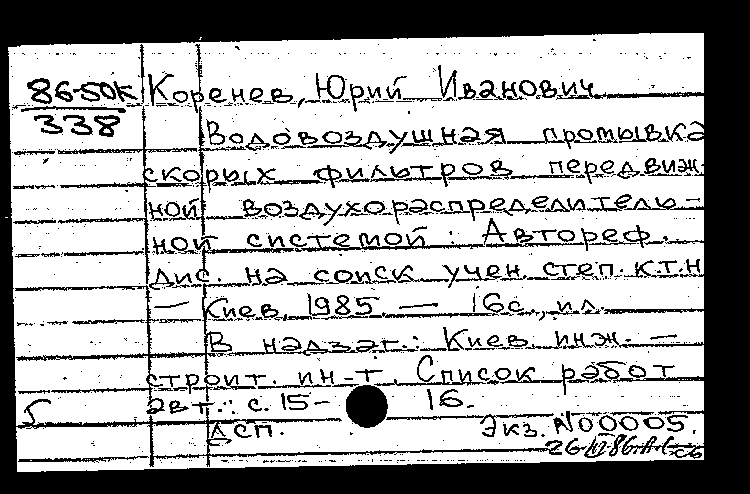 86-50К Коренев, Юрий Иванович
338
Водовоздушная промывка
скорых фильтров передвиж-
ной воздухораспределитель-
ной системой : Автореф.
дис. на соиск учен. степ. к.т.н
— Киев, 1985. — 16с., ил.
В надзаг.: Киев. инж. —
строит. ин-т. Список работ
авт.: с. 15- 16.
ДСП. Экз. N00005.